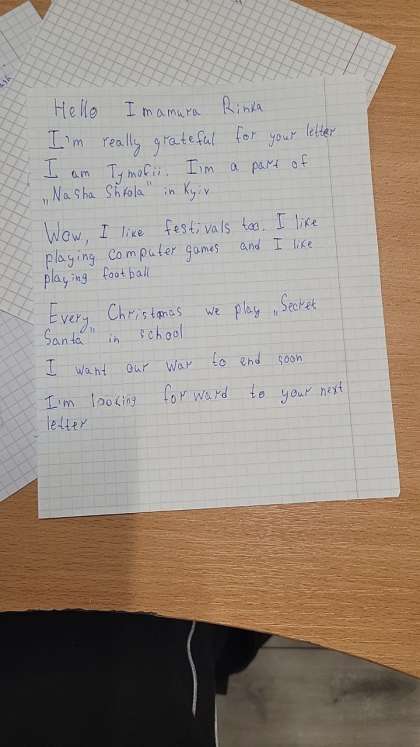 Hello Imamura Rinka
I'm really grateful for your letter
I am Tymofii. I'm a part of
„Nasha Shkola" in Kyiv
Wow, I like festivals too. I like
playing computer games and I like
playing football
Every Christmas we play „Secret
Santa" in school
I want our war to end soon
I'm looking forward to your next
letter